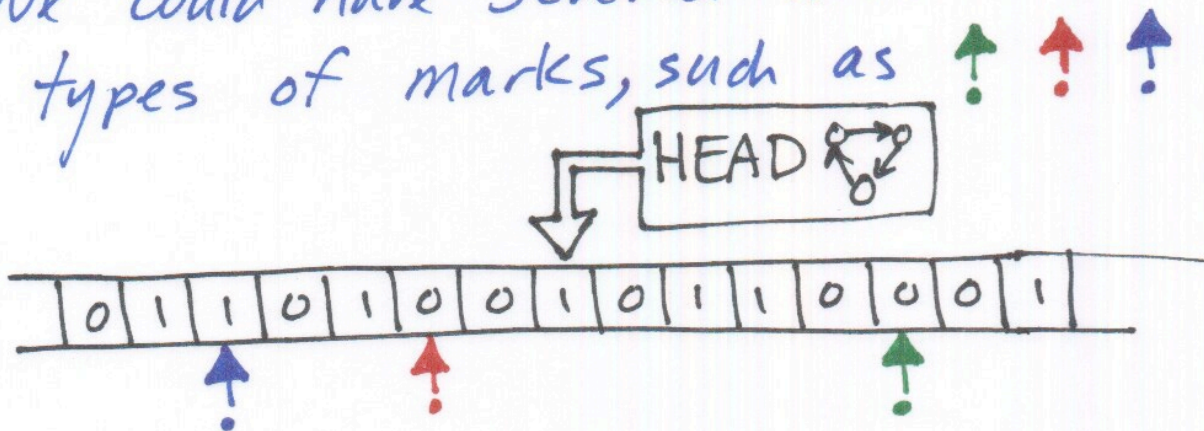 could have
types of marks, such as
HEAD
0 1 1 0 1 0 0 1 0 1 1 0 0 0 1